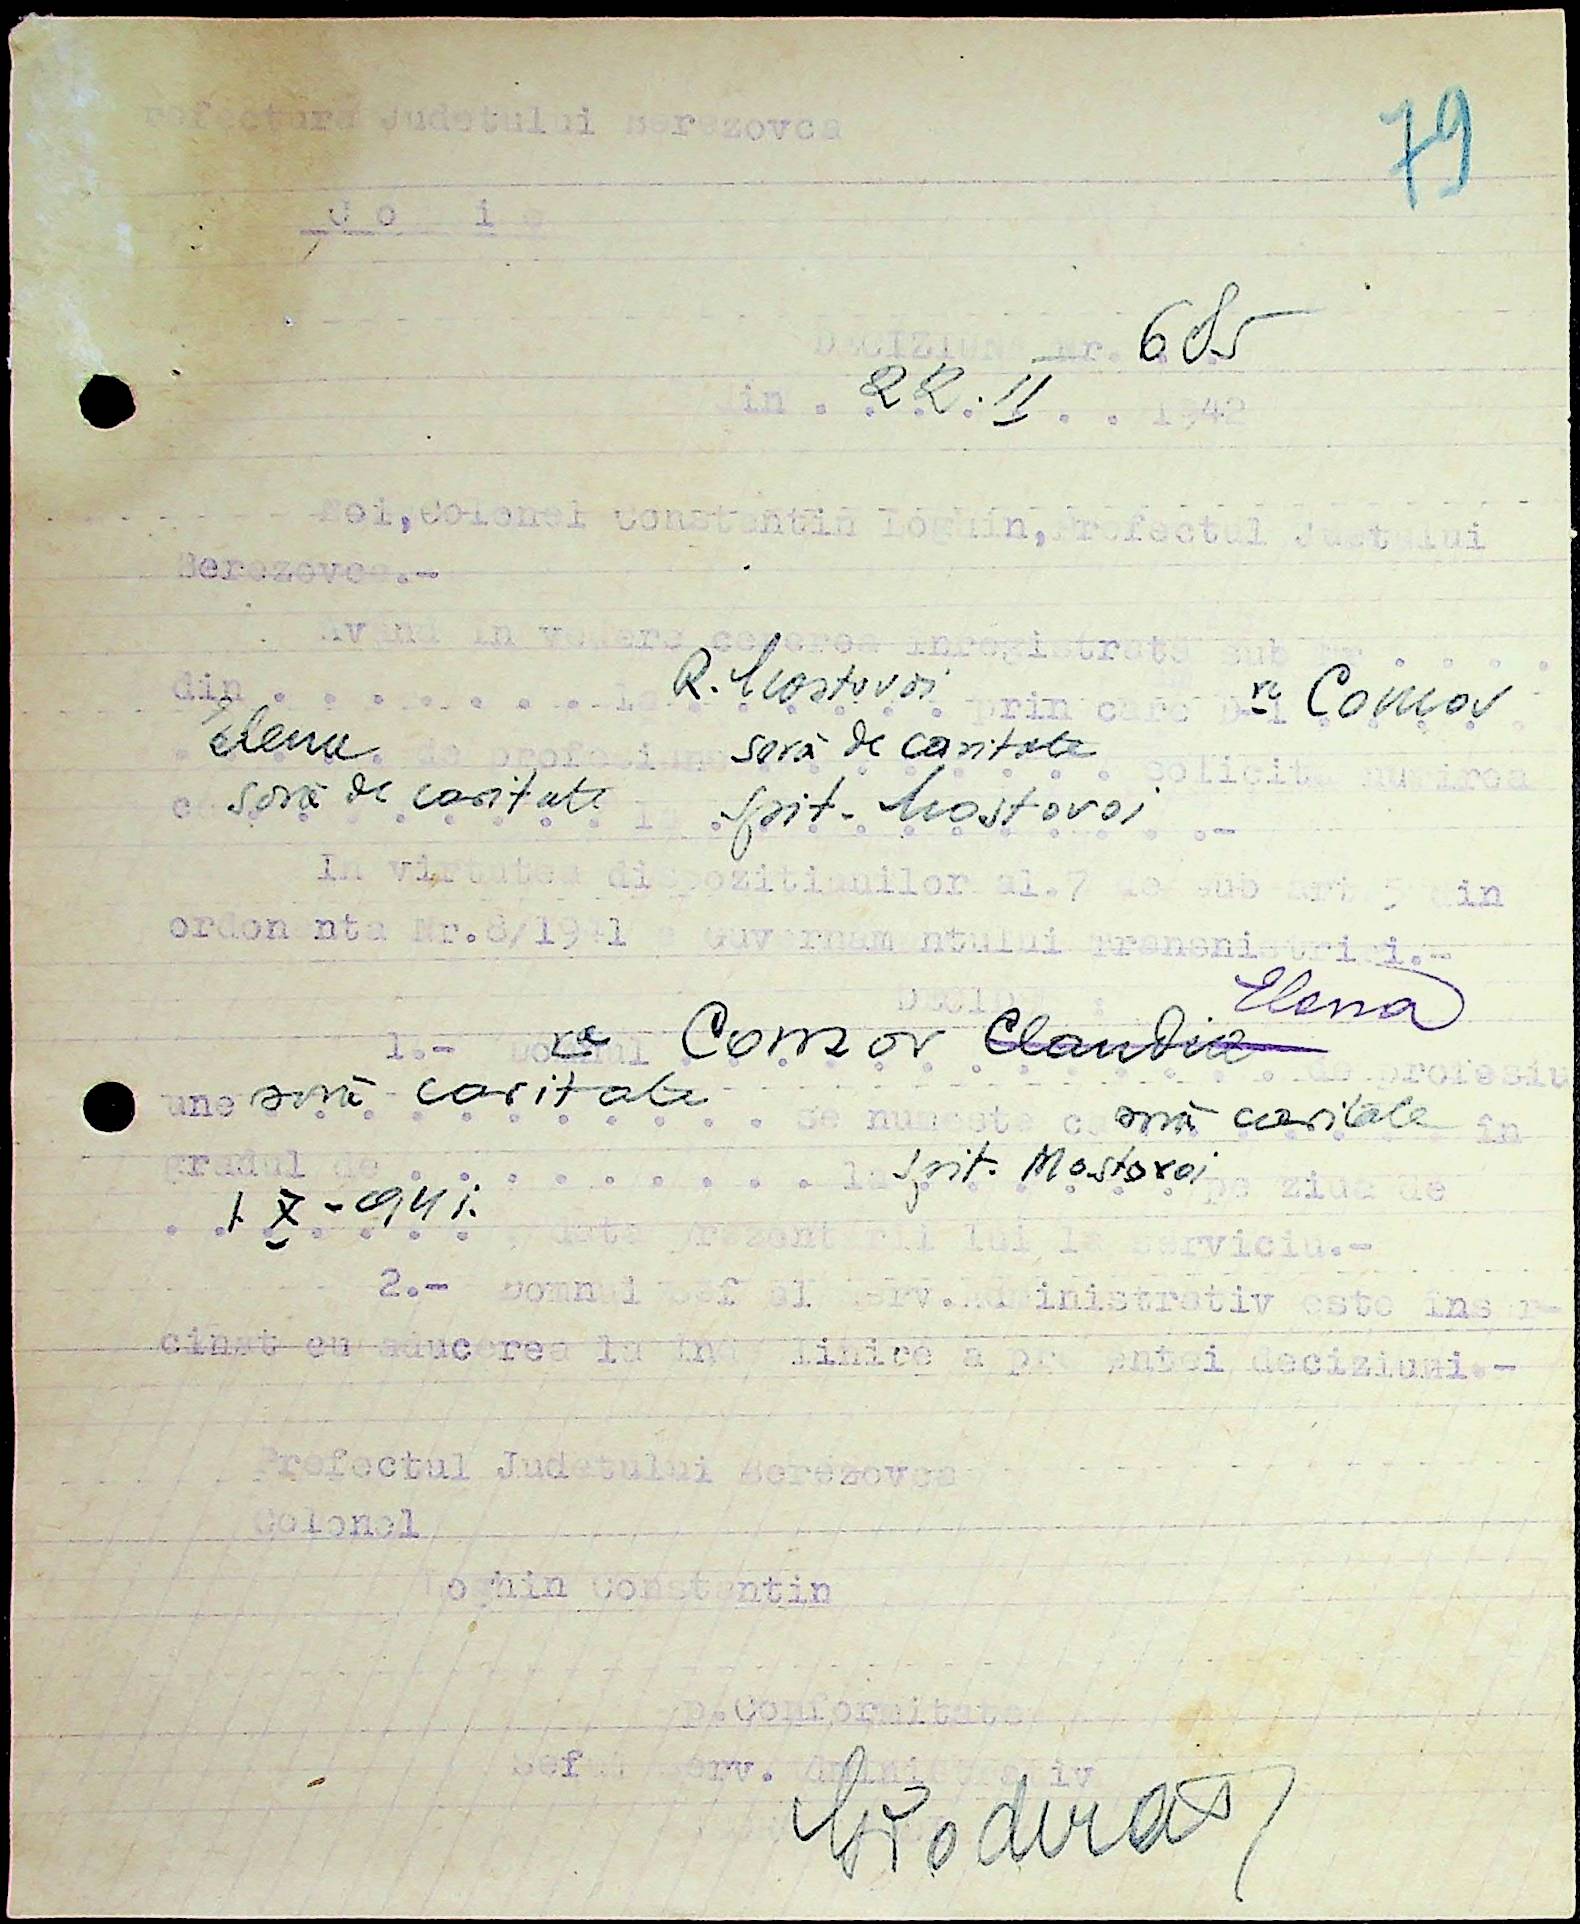 79
Prefectura Judetului Berezovca
Copie
DECIZIUNE Nr. 685
din . 22.II . . 1942
Noi, Colonel Constantin Loghin, Prefectul Judetului
Berezovca.-
Avand in vedere cererea inregistrata sub Nr . . . . .
din . . . . . . . . la R. Mostovoi prin care D-l ra Comov
Elena de profesiune soră de caritate solicita numirea
ca soră de caritate la Spit. Mostovoi .-
In virtutea dispozitiunilor al.7 de sub art.5 din
ordonanta Nr.8/1941 a Guvernamantului Transnistriei.-
DECIDEM :
Elena
1.- Domnul ra Comov Claudia de profesiu
une soră caritate se numeste ca soră caritate in
gradul de . . . . . . . . . la Spit. Mostovoi pe ziua de
1 X - 941. , data prezentarii lui la serviciu.-
2.- Domnul Sef al Serv.Administrativ este insar-
cinat cu aducerea la indeplinire a prezentei deciziuni.-
Prefectul Judetului Berezovca
Colonel
Loghin Constantin
p.Conformitate
Seful Serv. Administrativ